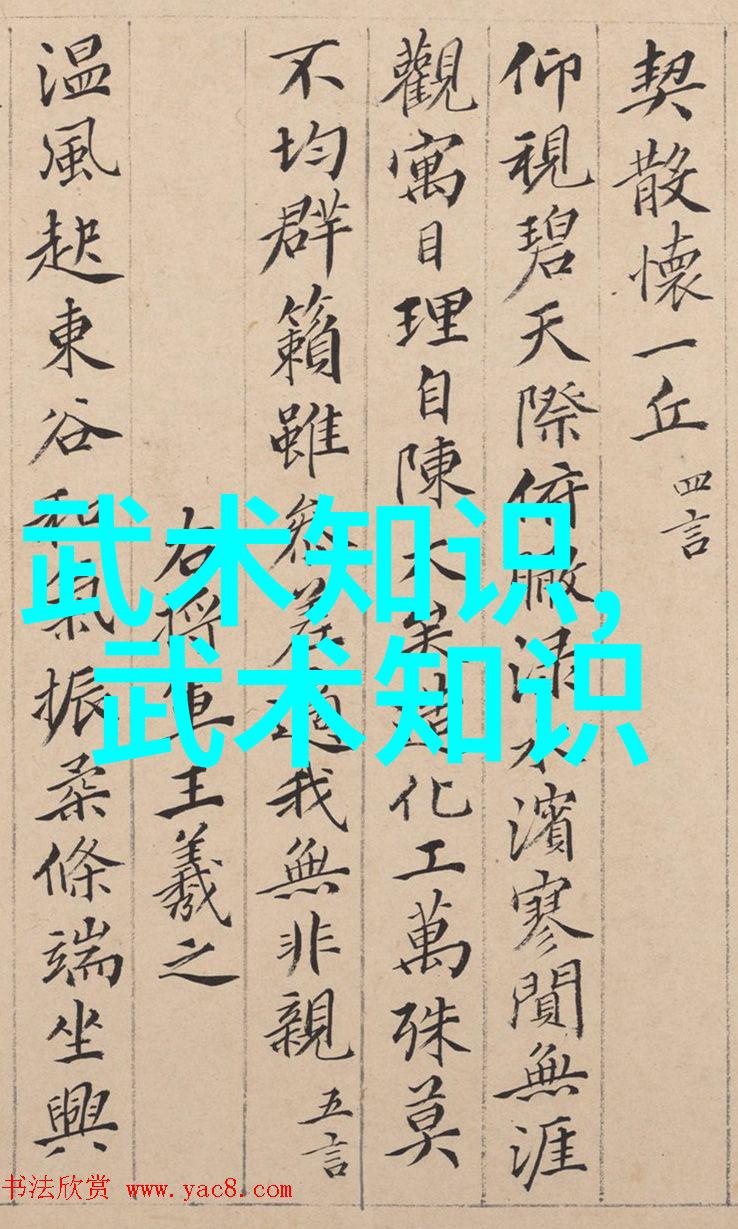 契散懷一丘 四言
仰視碧天際俯瞰渌水濱寥閴無涯
觀寓目理自陳大矣造化工萬殊莫
不均群籟雖參差適我無非親 五言
右將軍王羲之
温風起東谷和氣振柔條端坐興
武术知识,
武术知识
书法欣赏 www.yac8.com